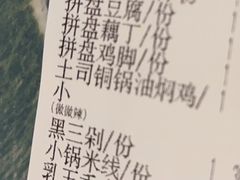 拼盘豆腐/份
拼盘藕丁/份
拼盘鸡脚/份
土司铜锅油焖鸡/
小
(微微辣)
黑三剁/份
小锅米线/份
乳玉